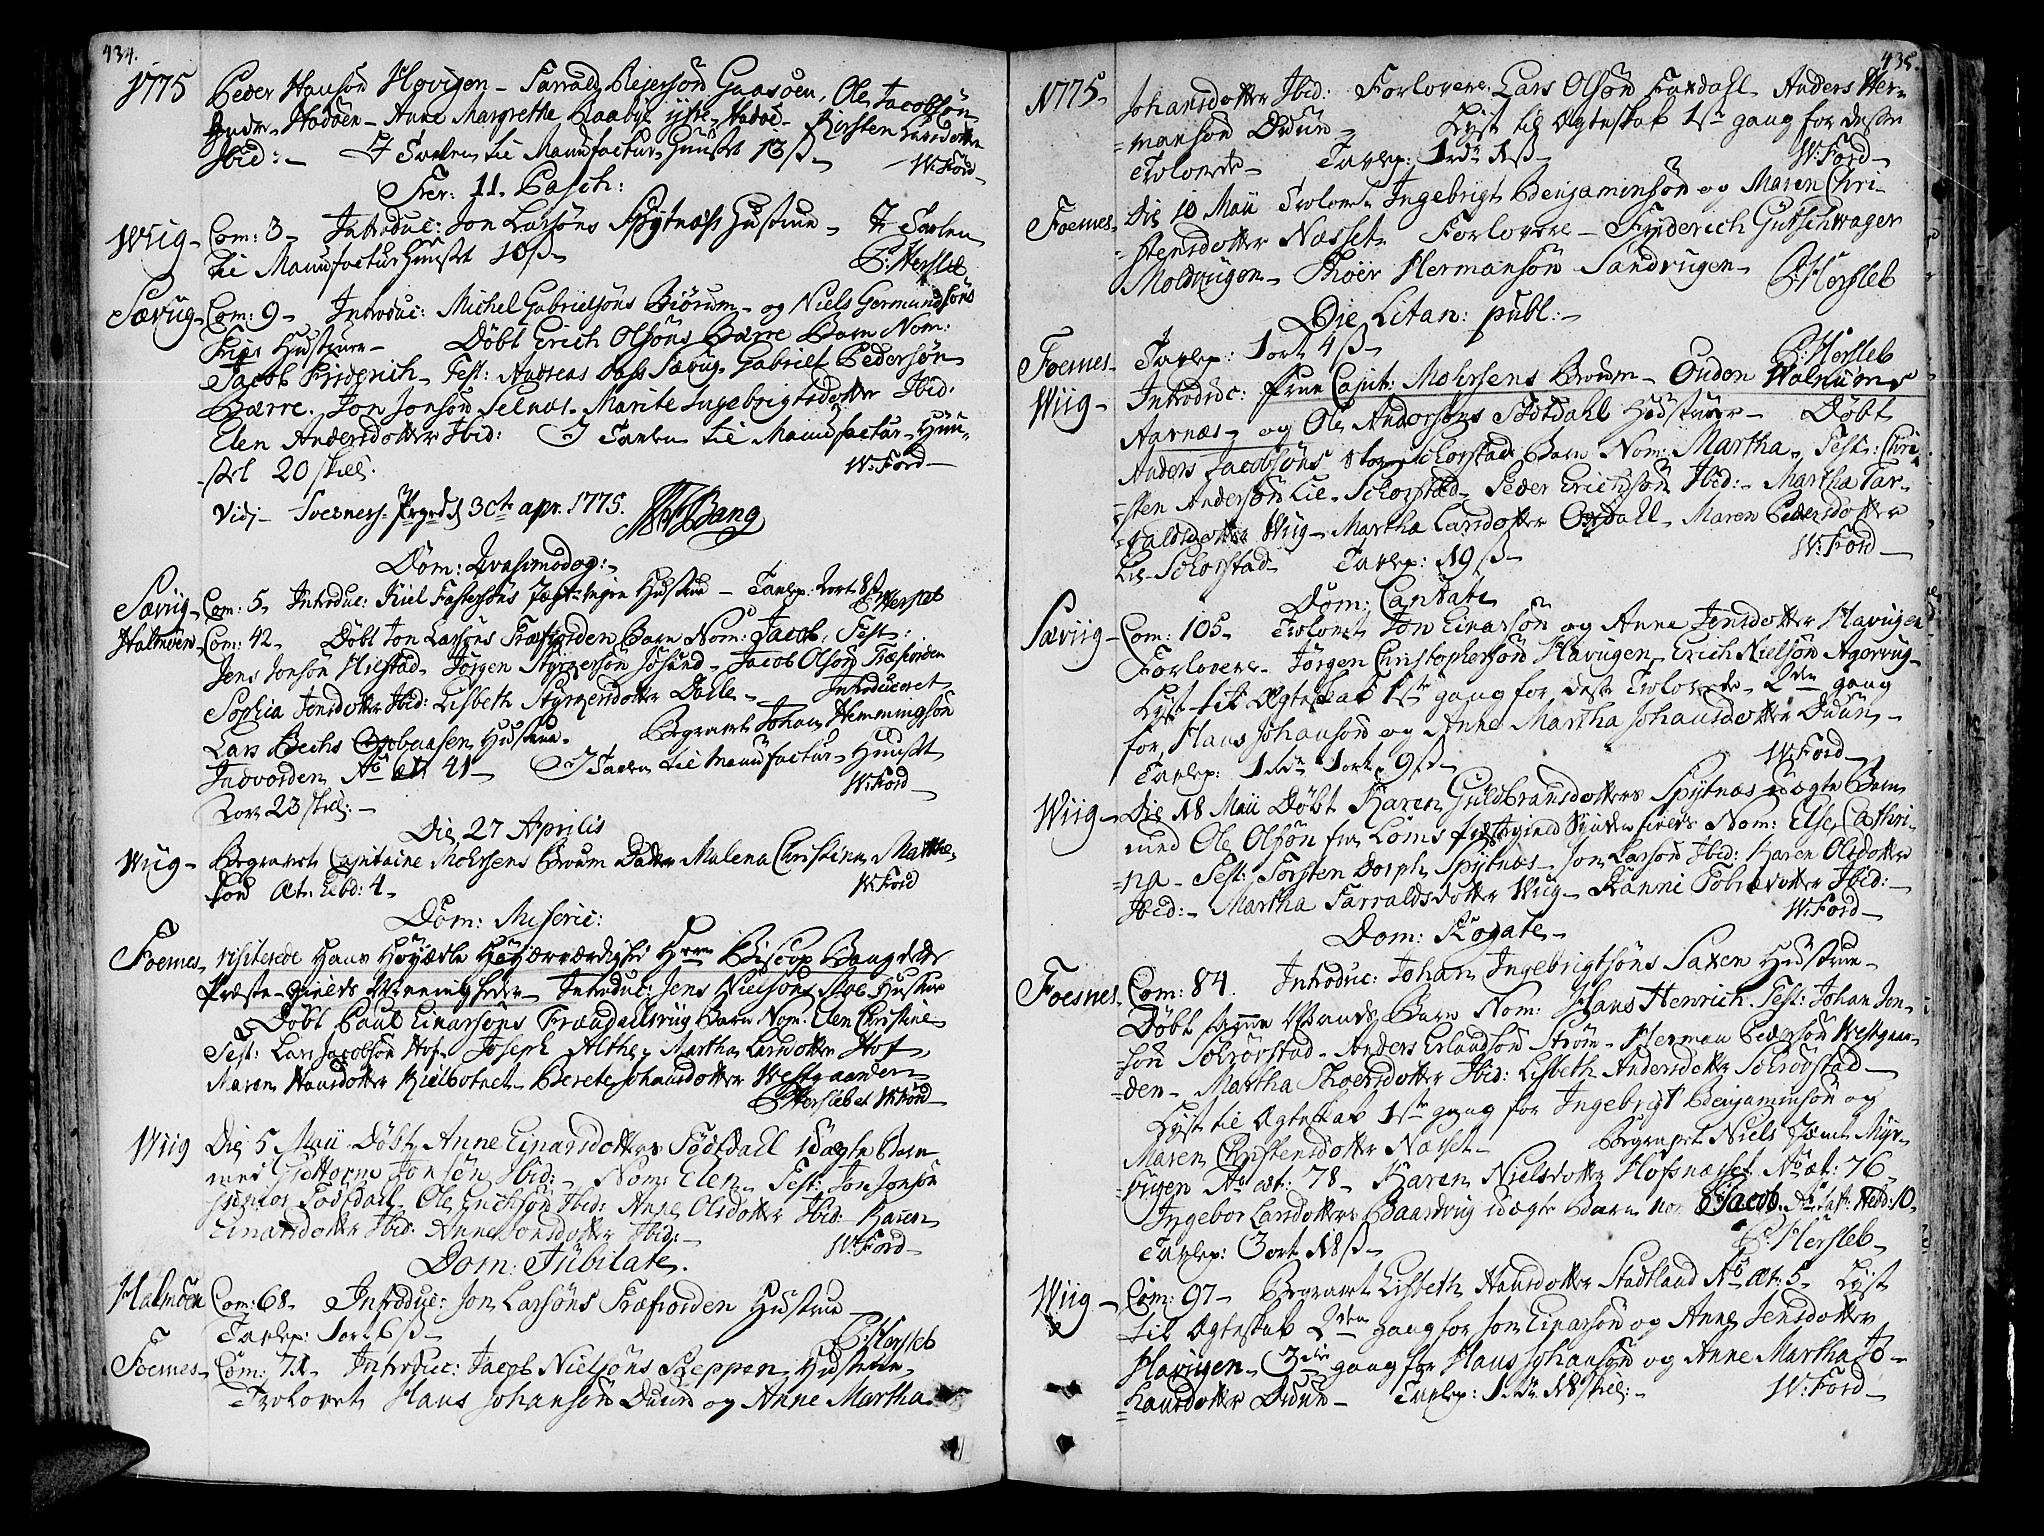 434.
1775 Peder Hansön Hovigen - Harrald Reiersön Gaasöen, Ole Jacobsön
Hodöen - Anne Margrethe Raabye - Hodöe - Karsten Larsdotter
Ibid: - I Tavlen til Manufactur Huuset 13 ß -
W: Ford -
Fer: 11. Pasch:
Wiig - Com: 3 - Introduc: Jon Larsöns Spytnæs Hustrue - I Tavlen
til Manufactur Huuset 10 ß -
P: Hersleb
Særviig - Com: 9 - Introduc: Michel Gabrielsöns Biörum - og Niels Germundsöns
Hustruer - Döbt Erich Olsöns Bærre Barn Nom:
Jacob Friderich - Test: Andreas Dass Særviig - Gabriel Pedersön
Bærre. Jon Jonsön Selnæs - Marite Ingebrigtsdotter Ibid:
Elen Andersdotter Ibid: I Tavlen til Manufactur Huu-
set 20 skil:
W: Ford -
Vidi - Foesnes Prgrd d 30te apr. 1775. Bang
Dom: Qvasimodog: -
Særviig - Com: 5. Introduc: Kiel Fastersöns Hustrue - Tavlep: 1 ort 8 ß
P: Hersleb
Halmöen - Com: 42 - Döbt Jon Larsöns Træfiorden Barn Nom: Jacob, Test:
Jens Jonsön Hiestad - Jörgen Styrkersön Jösund - Jacob Olsön Træfiorden
Sophia Jensdotter Ibid: Lisbeth Styrkersdotter Dahle - Introduceret
Lars Bechs Hustrue - Begravet Johan Hemmingsön
Indvorden No æt 41 - I Tavlen til Manufactur Huuset
1 ort 23 skil: -
W: Ford -
Die 27 Aprilis
Wiig - Begravet Capitaine Mohrsens Broum Datter Malena Christina
æt: Ebd: 4 -
W: Ford
Dom: Miseric:
Foesnes - visiterede Hans Höyædle Höyærværdighed Hrr Biscop Bang dette
Præste-gields Menigheder - Introduc: Jens Nielsöns Hustrue
Döbt Paul Einarsöns Frændalsviig Barn Nom: Elen Christine
Test: Lars Jacobsön Hof - Joseph Althe - Martha Larsdotter Hof
Maren Hansdotter Kielbotnet - Berete Johansdotter Westgaarden
P: Hersleb et W: Ford -
Wiig Die 5 Maii Döbt Anne Einarsdotters Födtdall Uægte Barn
med Guttorm Jonsön Ibid: - Nom: Elen - Test: Jon Jonsön
Födtdall - Ole Erichsön Ibid: Anne Olsdotter Ibid: Karen
Einarsdotter Ibid: Anne Jonsdotter Ibid: -
W: Ford -
Dom: Jubilate.
Halmöen Com: 68 - Introduc: Jon Larsöns Træfiorden Hustrue -
Tavlep: 1 ort 6 ß -
P: Hersleb
Foesnes - Com: 71 - Introduc: Jacob Nielsöns Reppen Hustrue -
Trolovet Hans Johansön Duun og Anne Martha
435.
1775 - Johansdotter Ibid: Forlovere Lars Olsön Faxdahl - Anders Her-
=mansön Duun - Lyst til Ægteskab 1ste gang for desse
Trolovede - Tavlep: 1 rdr 1 ß -
W: Ford -
Foesnes - Die 10 Maii Trolovet Ingebrigt Benjaminsön og Maren Chri-
=stensdotter Næsset - Forlovere - Friderich Gutschwager
Moldvigen - Thoer Hermansön Sandvigen -
P: Hersleb
Die Litan: publ: -
Foesnes - Tavlep: 1 ort 4 ß -
P: Hersleb
Wiig - Introduc: Frue Capit: Mohrsens Broum - Ouden Halmöens
Aarnæs - og Ole Andersöns Födtdahl Hustruer - Döbt
Anders Jacobsöns Stor Schorstad Barn Nom: Martha - Test: Chri-
=sten Andersön Lil-Schorstad - Peder Erichsön Ibid: - Martha Tar-
=raldsdotter Wiig - Martha Larsdotter Opdall - Maren Pedersdotter
Lil-Schorstad - Tavlep: 19 ß -
W: Ford -
Dom: Cantate
Særviig - Com: 105 - Trolovet Jon Einarsön og Anne Jensdotter Havigen
Forlovere - Jörgen Christophersön Havigen - Erich Nielsön Agervig -
Lyst til Ægteskab 1ste gang for desse Trolovede - 2den gang
for Hans Johansön og Anne Martha Johansdotter Duun -
Tavlep: 1 rdr 1 ort 9 ß -
W: Ford -
Wiig - Die 18 Maii Döbt Karen Guldbrandsdotters Spytnæs uægte Barn
med Ole Olsön fra Loms Præstegield Nom: Else Cathri-
=na - Test: Torsten Dorph Spytnæs - Jon Larsön Ibid: Karen Olsdotter
Ibid: - Martha Tarraldsdotter Wiig - Ranni Tobiædotter Ibid: -
W: Ford -
Dom: Rogate -
Foesnes - Com: 84. Introduc: Johan Ingebrigtsöns Saxen Hustrue -
Döbt Barn Nom: Hans Henrich. Test: Johan Jon-
=sön Schrörstad - Anders Erlandsön Ström - Herman Pedersön Westgaar-
=den - Martha Thoersdotter Ibid: Lisbeth Andersdotter Schröostad -
Lyst til Ægteskab 1ste gang for Ingebrigt Benjaminsön og
Maren Christensdotter Næsset - Begravet Niels Myr-
=vigen No æt: 78 - Karen Nielsdotter Hofsnæsset No æt: 76 -
Ingebor Larsdotters Baardviig uægte Barn nom Jacob - Hebd: 10 -
Tavlep: 3 ort 18 ß -
P: Hersleb -
Wiig - Com: 97 - Begravet Lisbeth Hansdotter Stadtland No æt: 5 - Lyst
til Ægteskab 2den gang for Jon Einarsön og Anne Jensdotter
Havigen - 3die gang for Hans Johansön og Anne Martha Jo-
=hansdotter Duun - Tavlep: 1 rdr 18 skil: -
W: Ford -